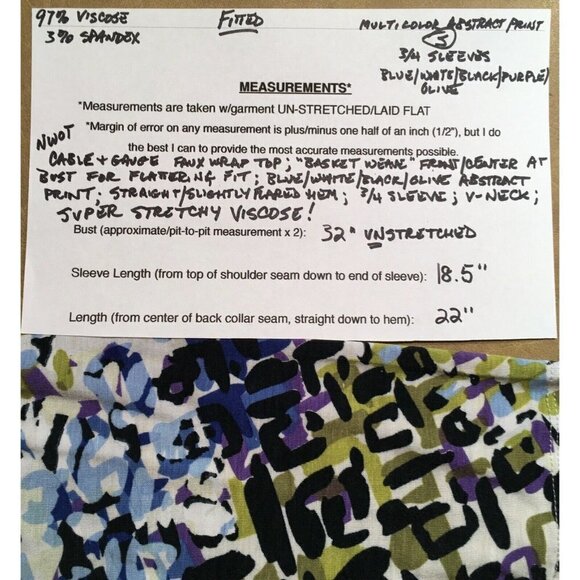 97% VISCOSE
3% SPANDEX
FITTED
MULTICOLOR ABSTRACT PRINT
3
3/4 SLEEVES
BLUE/WHITE/BLACK/PURPLE/
OLIVE
MEASUREMENTS*
*Measurements are taken w/garment UN-STRETCHED/LAID FLAT
*Margin of error on any measurement is plus/minus one half of an inch (1/2"), but I do
the best I can to provide the most accurate measurements possible.
NWOT
CABLE + GAUGE FAUX WRAP TOP; "BASKET WEAVE" FRONT/CENTER AT
BUST FOR FLATTERING FIT; BLUE/WHITE/BLACK/OLIVE ABSTRACT
PRINT; STRAIGHT/SLIGHTLY FLARED HEM; 3/4 SLEEVE; V-NECK;
SUPER STRETCHY VISCOSE!
Bust (approximate/pit-to-pit measurement x 2): 32" UNSTRETCHED
Sleeve Length (from top of shoulder seam down to end of sleeve): 18.5"
Length (from center of back collar seam, straight down to hem): 22"